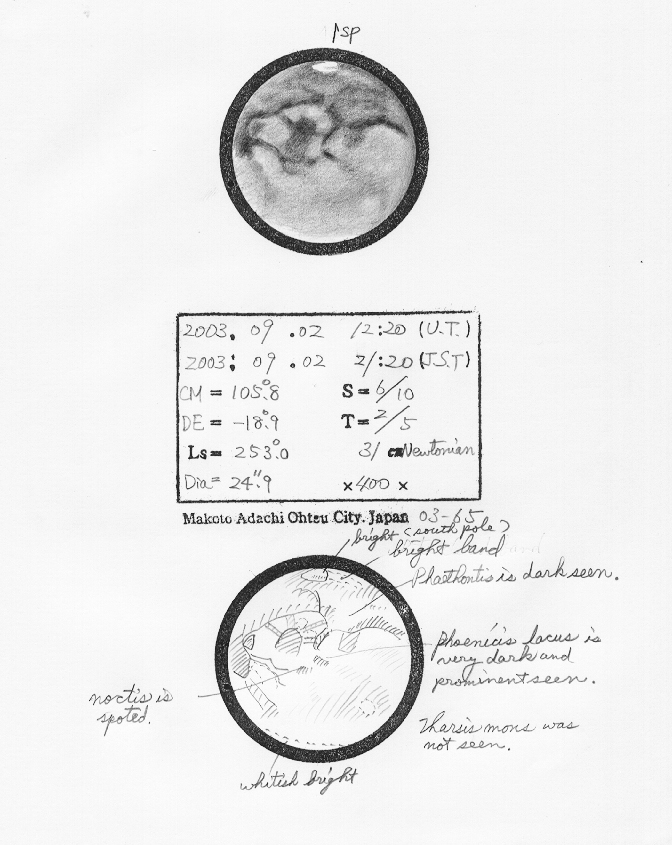 SP
2003. 09 .02 12:20 (U.T.)
2003: 09 .02 21:20 (J.S.T)
CM = 105.°8 S = 6/10
DE = -18.°9 T = 2/5
Ls = 253.°0 31 cm Newtonian
Dia = 24."9 ×400 ×
Makoto Adachi Ohtsu City. Japan 03-65
bright (south pole)
bright band
Phaethontis is dark seen.
phoenicis lacus is
very dark and
prominent seen.
noctis is
spoted.
Tharsis mons was
not seen.
whitish bright